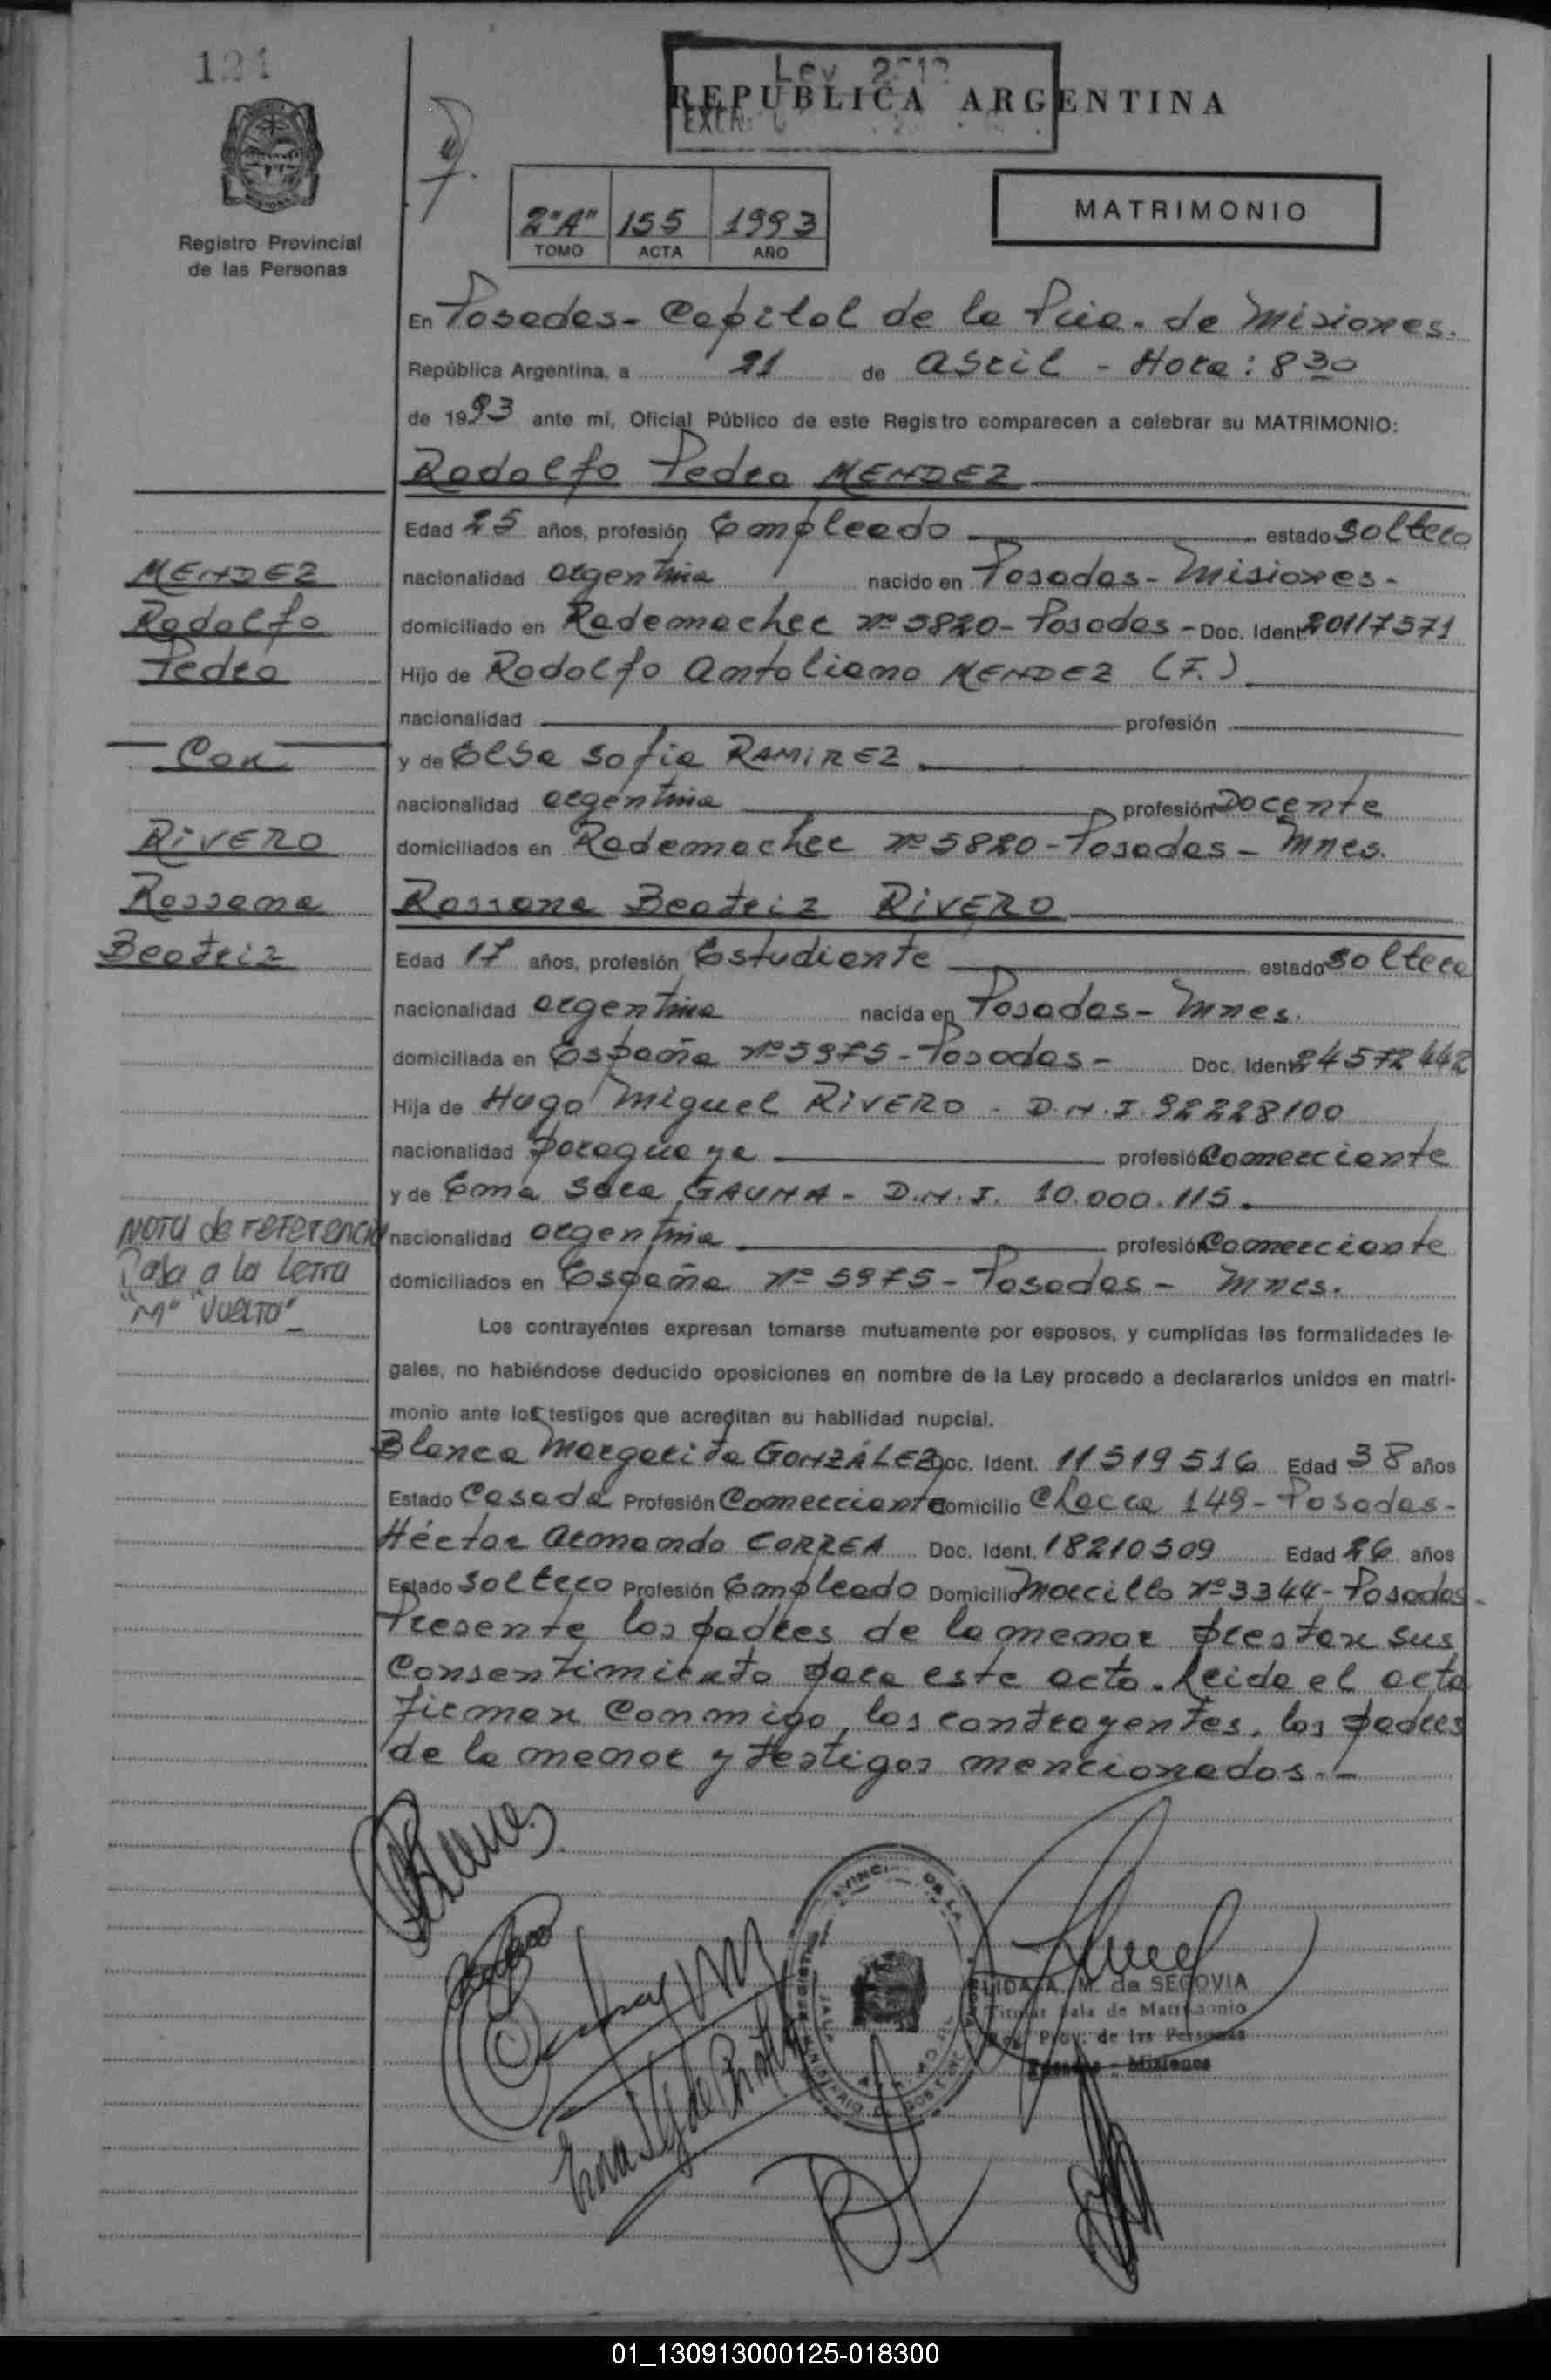 121
Ley
REPUBLICA ARGENTINA
Registro Provincial
de las Personas
2"A" 155 1993
TOMO ACTA AÑO
MATRIMONIO
En Posadas - Capital de la Pcia. de Misiones.
República Argentina, a 21 de Abril - Hora: 830
de 1993 ante mí, Oficial Público de este Registro comparecen a celebrar su MATRIMONIO:
Rodolfo Pedro MENDEZ
Edad 25 años, profesión Empleado estado Soltero
MENDEZ
nacionalidad argentina nacido en Posadas - Misiones -
Rodolfo
domiciliado en Rademacher nº 5820 - Posadas - Doc. Ident. 20117571
Pedro
Hijo de Rodolfo Antoliano MENDEZ (F.)
nacionalidad profesión
Con
y de Elsa Sofia RAMIREZ
nacionalidad argentina profesión Docente
RIVERO
domiciliados en Rademacher nº 5820 - Posadas - Mnes.
Rossana
Rossana Beatriz RIVERO
Beatriz
Edad 17 años, profesión Estudiante estado soltera
nacionalidad argentina nacida en Posadas - Mnes.
domiciliada en España nº 5975 - Posadas - Doc. Ident. 24572442
Hija de Hugo Miguel RIVERO - D.N.I. 92228100
nacionalidad paraguaya profesión Comerciante
y de Ema Sara GAUNA - D.N.I. 10.000.115
NOTA de REFERENCIA
nacionalidad argentina profesión Comerciante
Pasa a la Letra
domiciliados en España nº 5975 - Posadas - Mnes.
"M" "VUELTO"
Los contrayentes expresan tomarse mutuamente por esposos, y cumplidas las formalidades le-
gales, no habiéndose deducido oposiciones en nombre de la Ley procedo a declararlos unidos en matri-
monio ante los testigos que acreditan su habilidad nupcial.
Blanca Margarita GONZÁLEZ Doc. Ident. 11519516 Edad 38 años
Estado Casada Profesión Comerciante Domicilio Chacra 149 - Posadas -
Héctor Armando CORREA Doc. Ident. 18210509 Edad 26 años
Estado Soltero Profesión Empleado Domicilio Morcillo nº 3344 - Posadas -
Presente los padres de la menor prestan sus
Consentimiento para este acto. Leida el acta
firman conmigo, los contrayentes, los padres
de la menor y testigos mencionados. -
LIDA A. M. de SEGOVIA
Titular Sala de Matrimonio
Reg. Prov. de las Personas
Posadas - Misiones
01_130913000125-018300